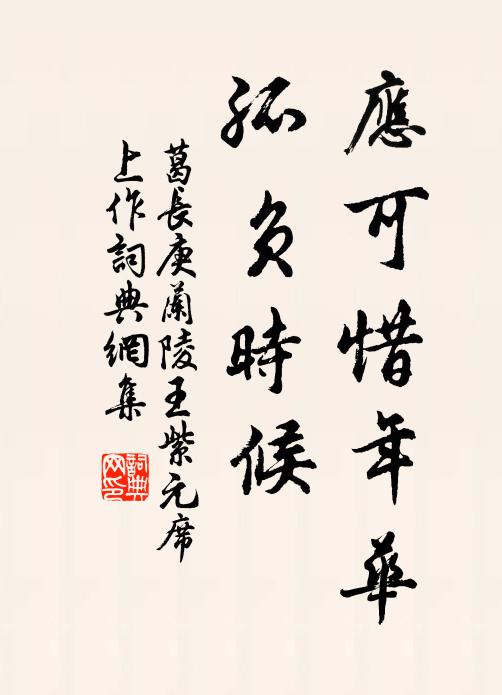 應可惜年華
孤負時候
葛長庚蘭陵王紫元席
上作詞典網集
詞典
网印